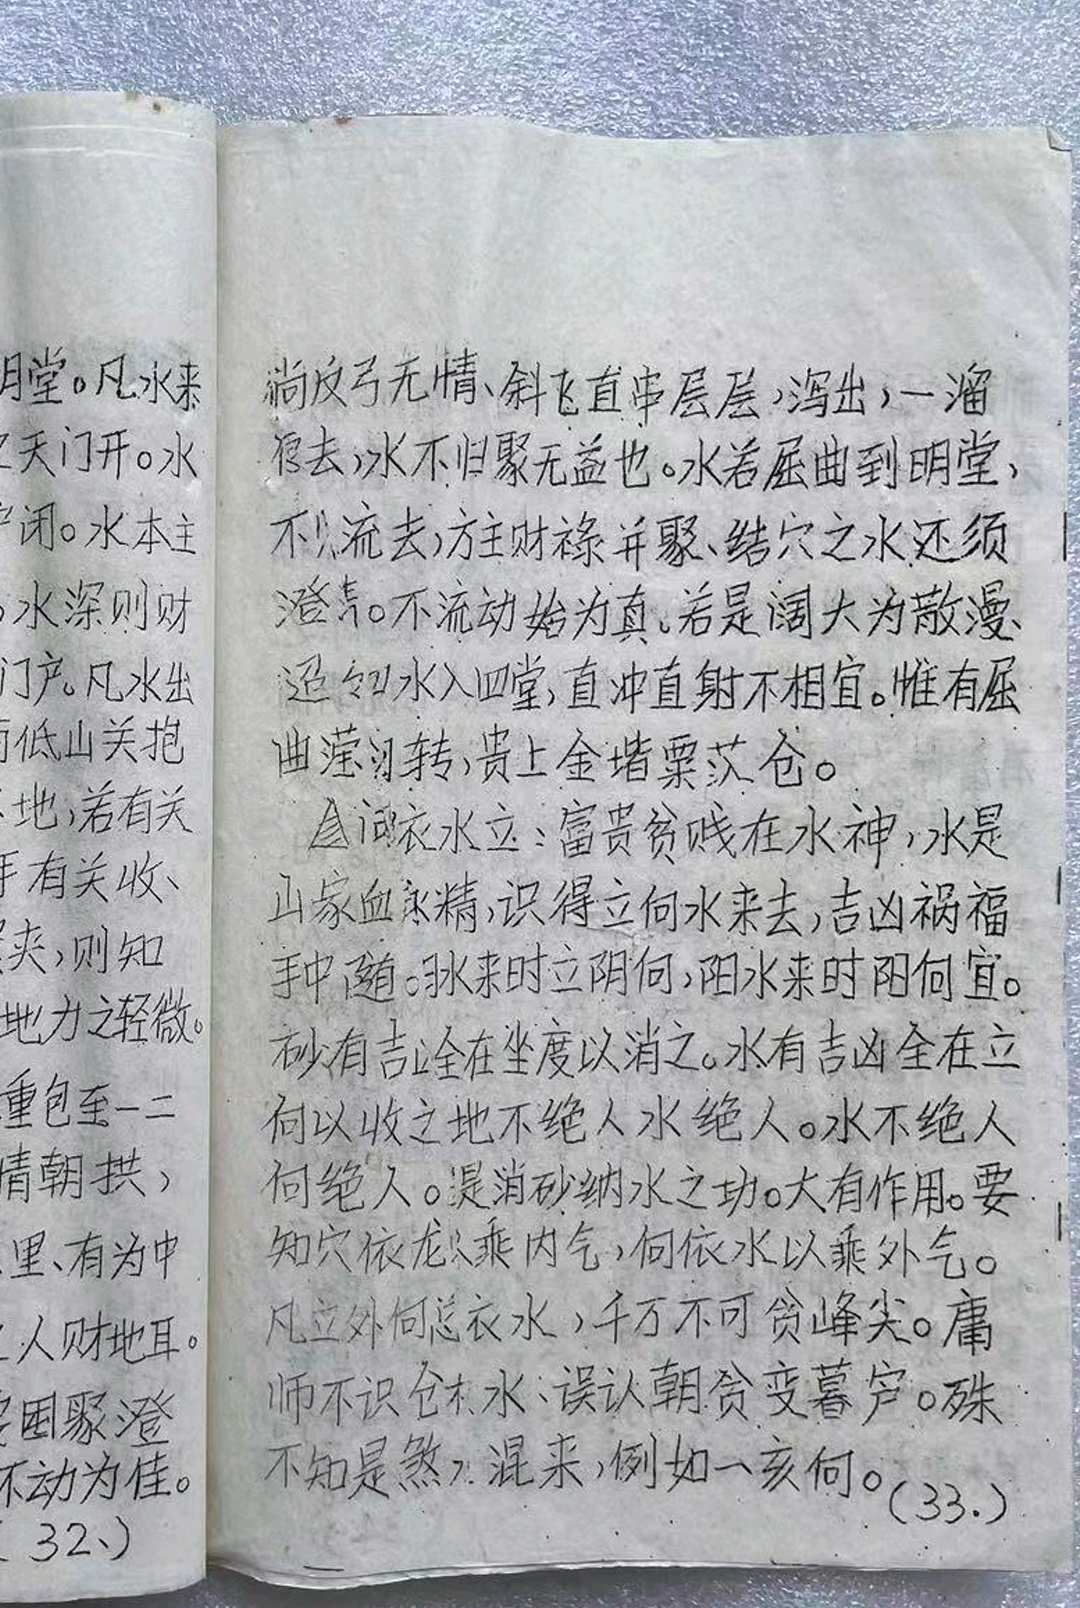 明堂。凡水来
天门开。水
闭。水本主
水深则财
门户。凡水出
低山关抱
地,若有关
有关收、
夹,则知
地力之轻微。
重包至一二
情朝拱,
里、有为中
人财地耳。
困聚澄
不动为佳。
(32、)
倘反弓无情、斜飞直串层层,泻出,一溜
去,水不归聚无益也。水若屈曲到明堂,
不流去,方主财禄并聚、结穴之水还须
澄清。不流动始为真。若是阔大为散漫、
水入四堂,直冲直射不相宜。惟有屈
曲潆洄转,贵上金堦粟茨仓。
向依水立:富贵贫贱在水神,水是
山家血脉精,识得立向水来去,吉凶祸福
手中随。水来时立阴向,阳水来时阳向宜。
砂有吉凶全在坐度以消之。水有吉凶全在立
向以收之地不绝人水绝人。水不绝人
向绝人。是消砂纳水之功。大有作用。要
知穴依龙以乘内气,向依水以乘外气。
凡立外向总衣水,千万不可贪峰尖。庸
师不识水:误认朝贪变暮穷。殊
不知是煞混来,例如一亥向。
(33.)